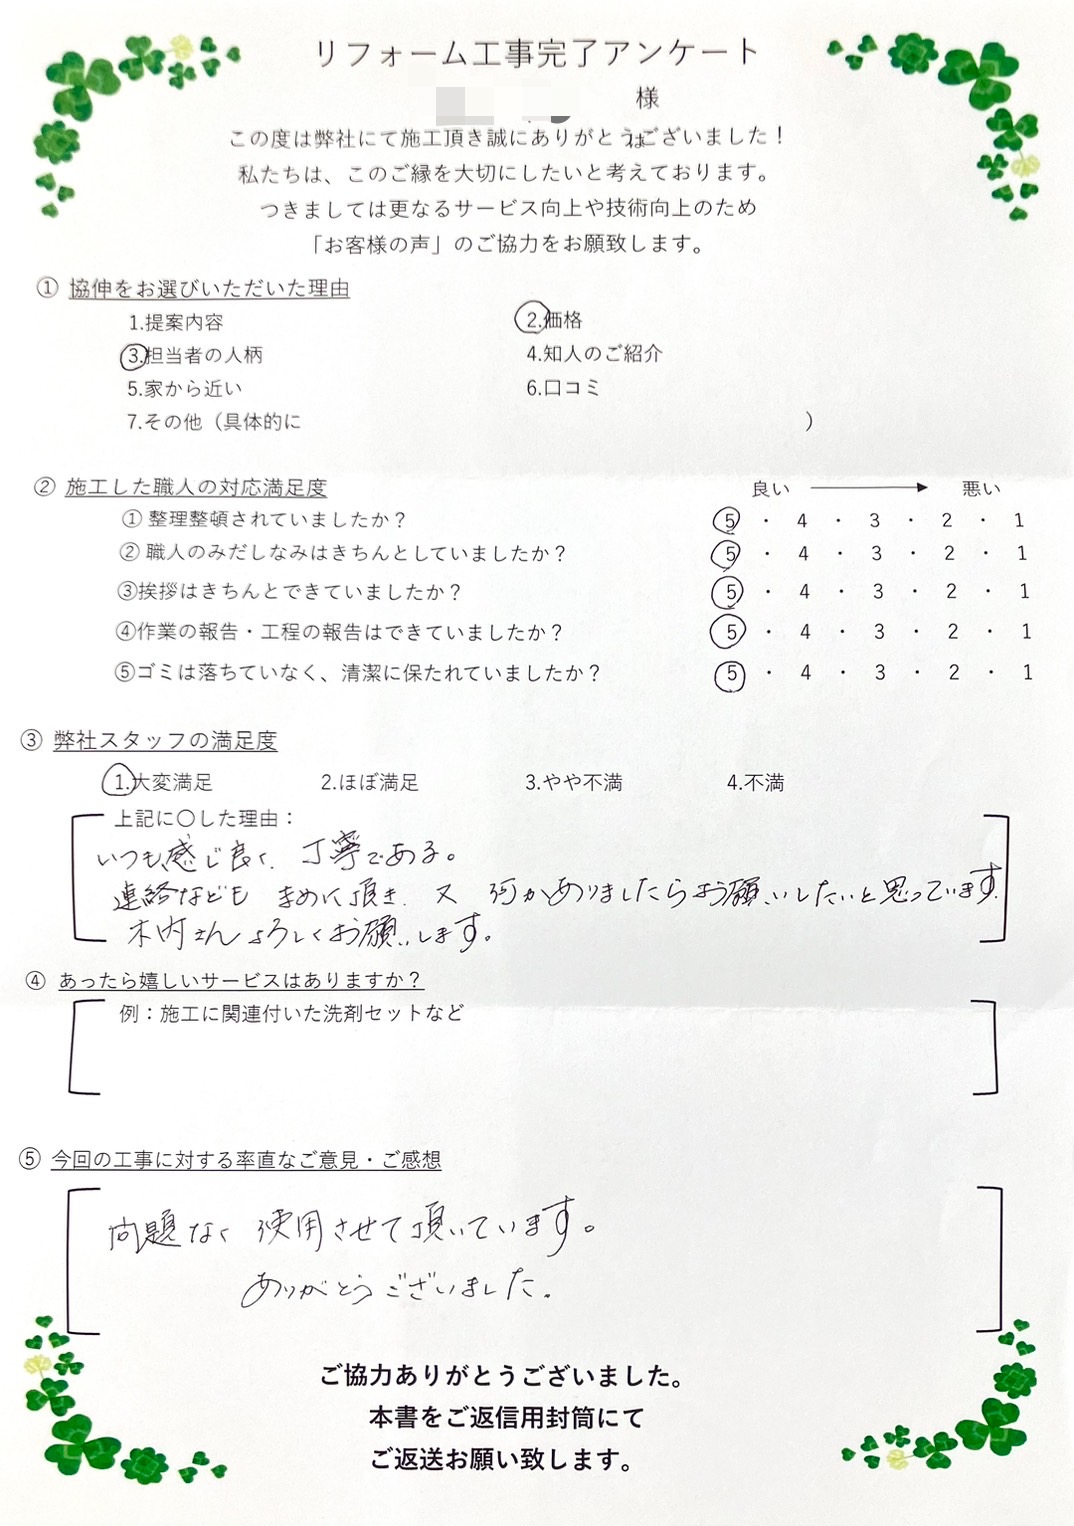 リフォーム工事完了アンケート
様
この度は弊社にて施工頂き誠にありがとうございました！
私たちは、このご縁を大切にしたいと考えております。
つきましては更なるサービス向上や技術向上のため
「お客様の声」のご協力をお願致します。
① 協伸をお選びいただいた理由
1.提案内容 2.価格
3.担当者の人柄 4.知人のご紹介
5.家から近い 6.口コミ
7.その他（具体的に ）
② 施工した職人の対応満足度 良い 悪い
① 整理整頓されていましたか？ 5 ・ 4 ・ 3 ・ 2 ・ 1
② 職人のみだしなみはきちんとしていましたか？ 5 ・ 4 ・ 3 ・ 2 ・ 1
③挨拶はきちんとできていましたか？ 5 ・ 4 ・ 3 ・ 2 ・ 1
④作業の報告・工程の報告はできていましたか？ 5 ・ 4 ・ 3 ・ 2 ・ 1
⑤ゴミは落ちていなく、清潔に保たれていましたか？ 5 ・ 4 ・ 3 ・ 2 ・ 1
③ 弊社スタッフの満足度
1.大変満足 2.ほぼ満足 3.やや不満 4.不満
上記に〇した理由：
いつも感じ良く、丁寧である。
連絡なども まめに頂き、又 何かありましたらお願いしたいと思っています。
木内さんよろしくお願いします。
④ あったら嬉しいサービスはありますか？
例：施工に関連付いた洗剤セットなど
⑤ 今回の工事に対する率直なご意見・ご感想
問題なく使用させて頂いています。
ありがとうございました。
ご協力ありがとうございました。
本書をご返信用封筒にて
ご返送お願い致します。